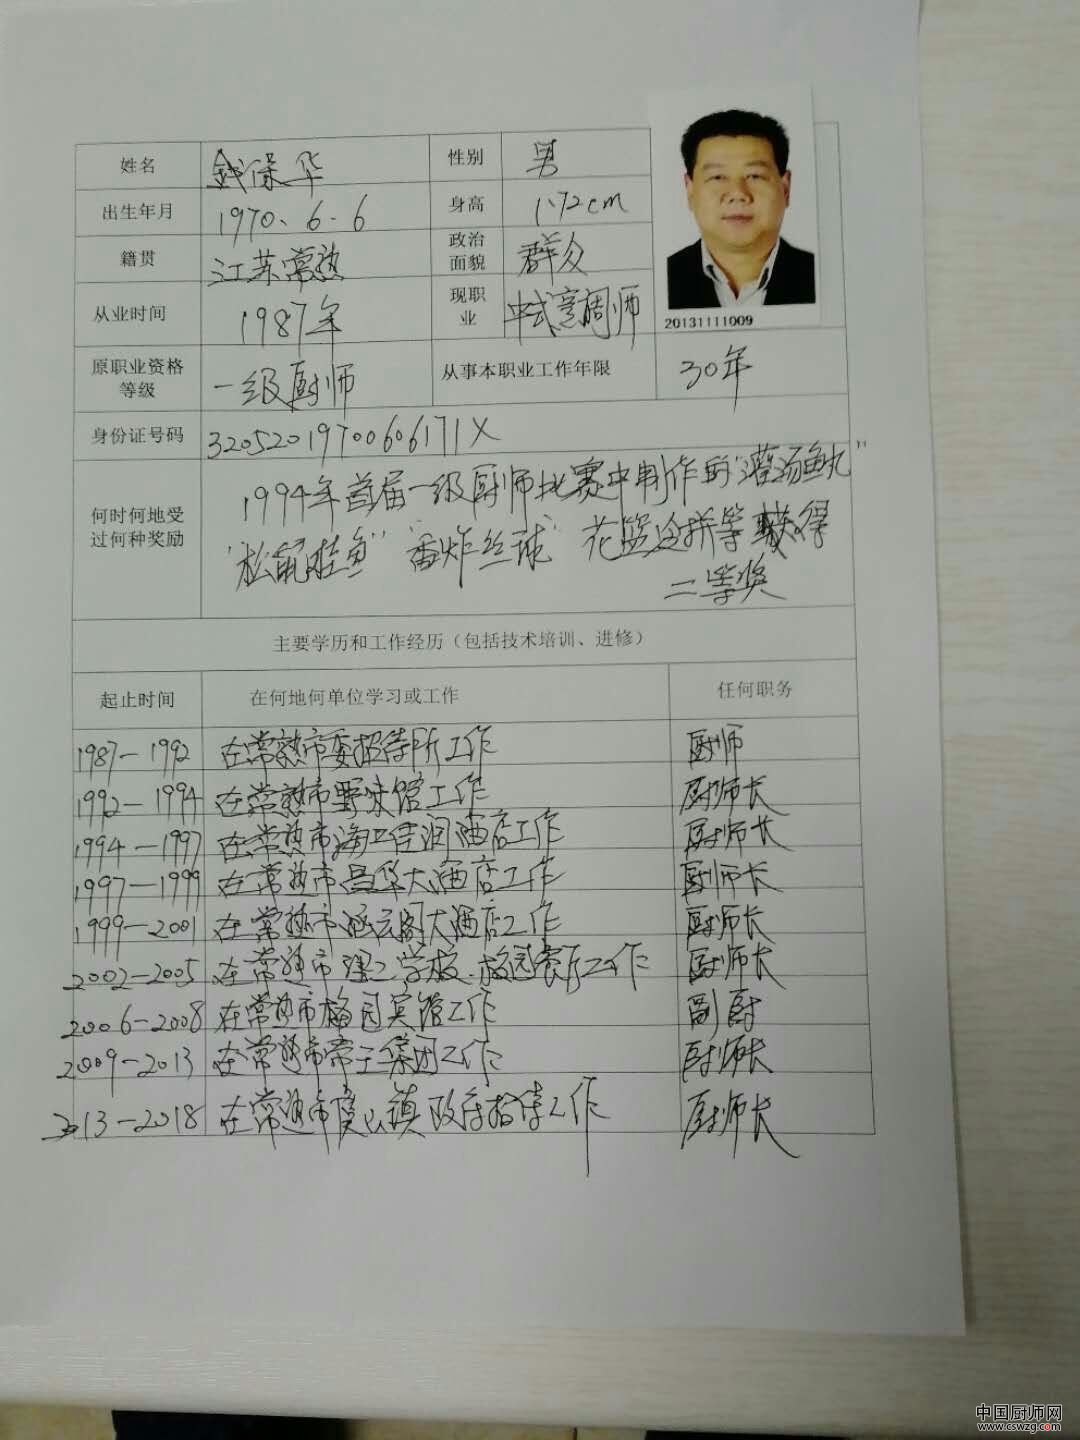 姓名 钱保华 性别 男
出生年月 1970.6.6 身高 1.72cm
籍贯 江苏常熟 政治面貌 群众
从业时间 1987年 现职业 中式烹调师
20131111009
原职业资格等级 一级厨师 从事本职业工作年限 30年
身份证号码 32052019700606171X
何时何地受过何种奖励
1994年首届一级厨师比赛中制作的"灌汤鱼丸"
"松鼠桂鱼" 香炸丝球" 花篮冷拼等获得
二等奖
主要学历和工作经历（包括技术培训、进修）
起止时间 在何地何单位学习或工作 任何职务
1987-1992 在常熟市委招待所工作 厨师
1992-1994 在常熟市野味馆工作 厨师长
1994-1997 在常熟市海工佳润酒店工作 厨师长
1997-1999 在常熟市昌华大酒店工作 厨师长
1999-2001 在常熟市涵元阁大酒店工作 厨师长
2002-2005 在常熟市理工学校.校园餐厅工作 厨师长
2006-2008 在常熟市梅园宾馆工作 副厨
2009-2013 在常熟市常工集团工作 厨师长
2013-2018 在常熟市虞山镇政府招待工作 厨师长
中国厨师网
www.cswzg.com